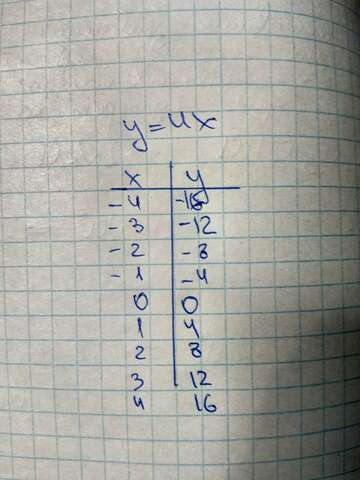 y=4x
x y
-4 -16
-3 -12
-2 -8
-1 -4
0 0
1 4
2 8
3 12
4 16